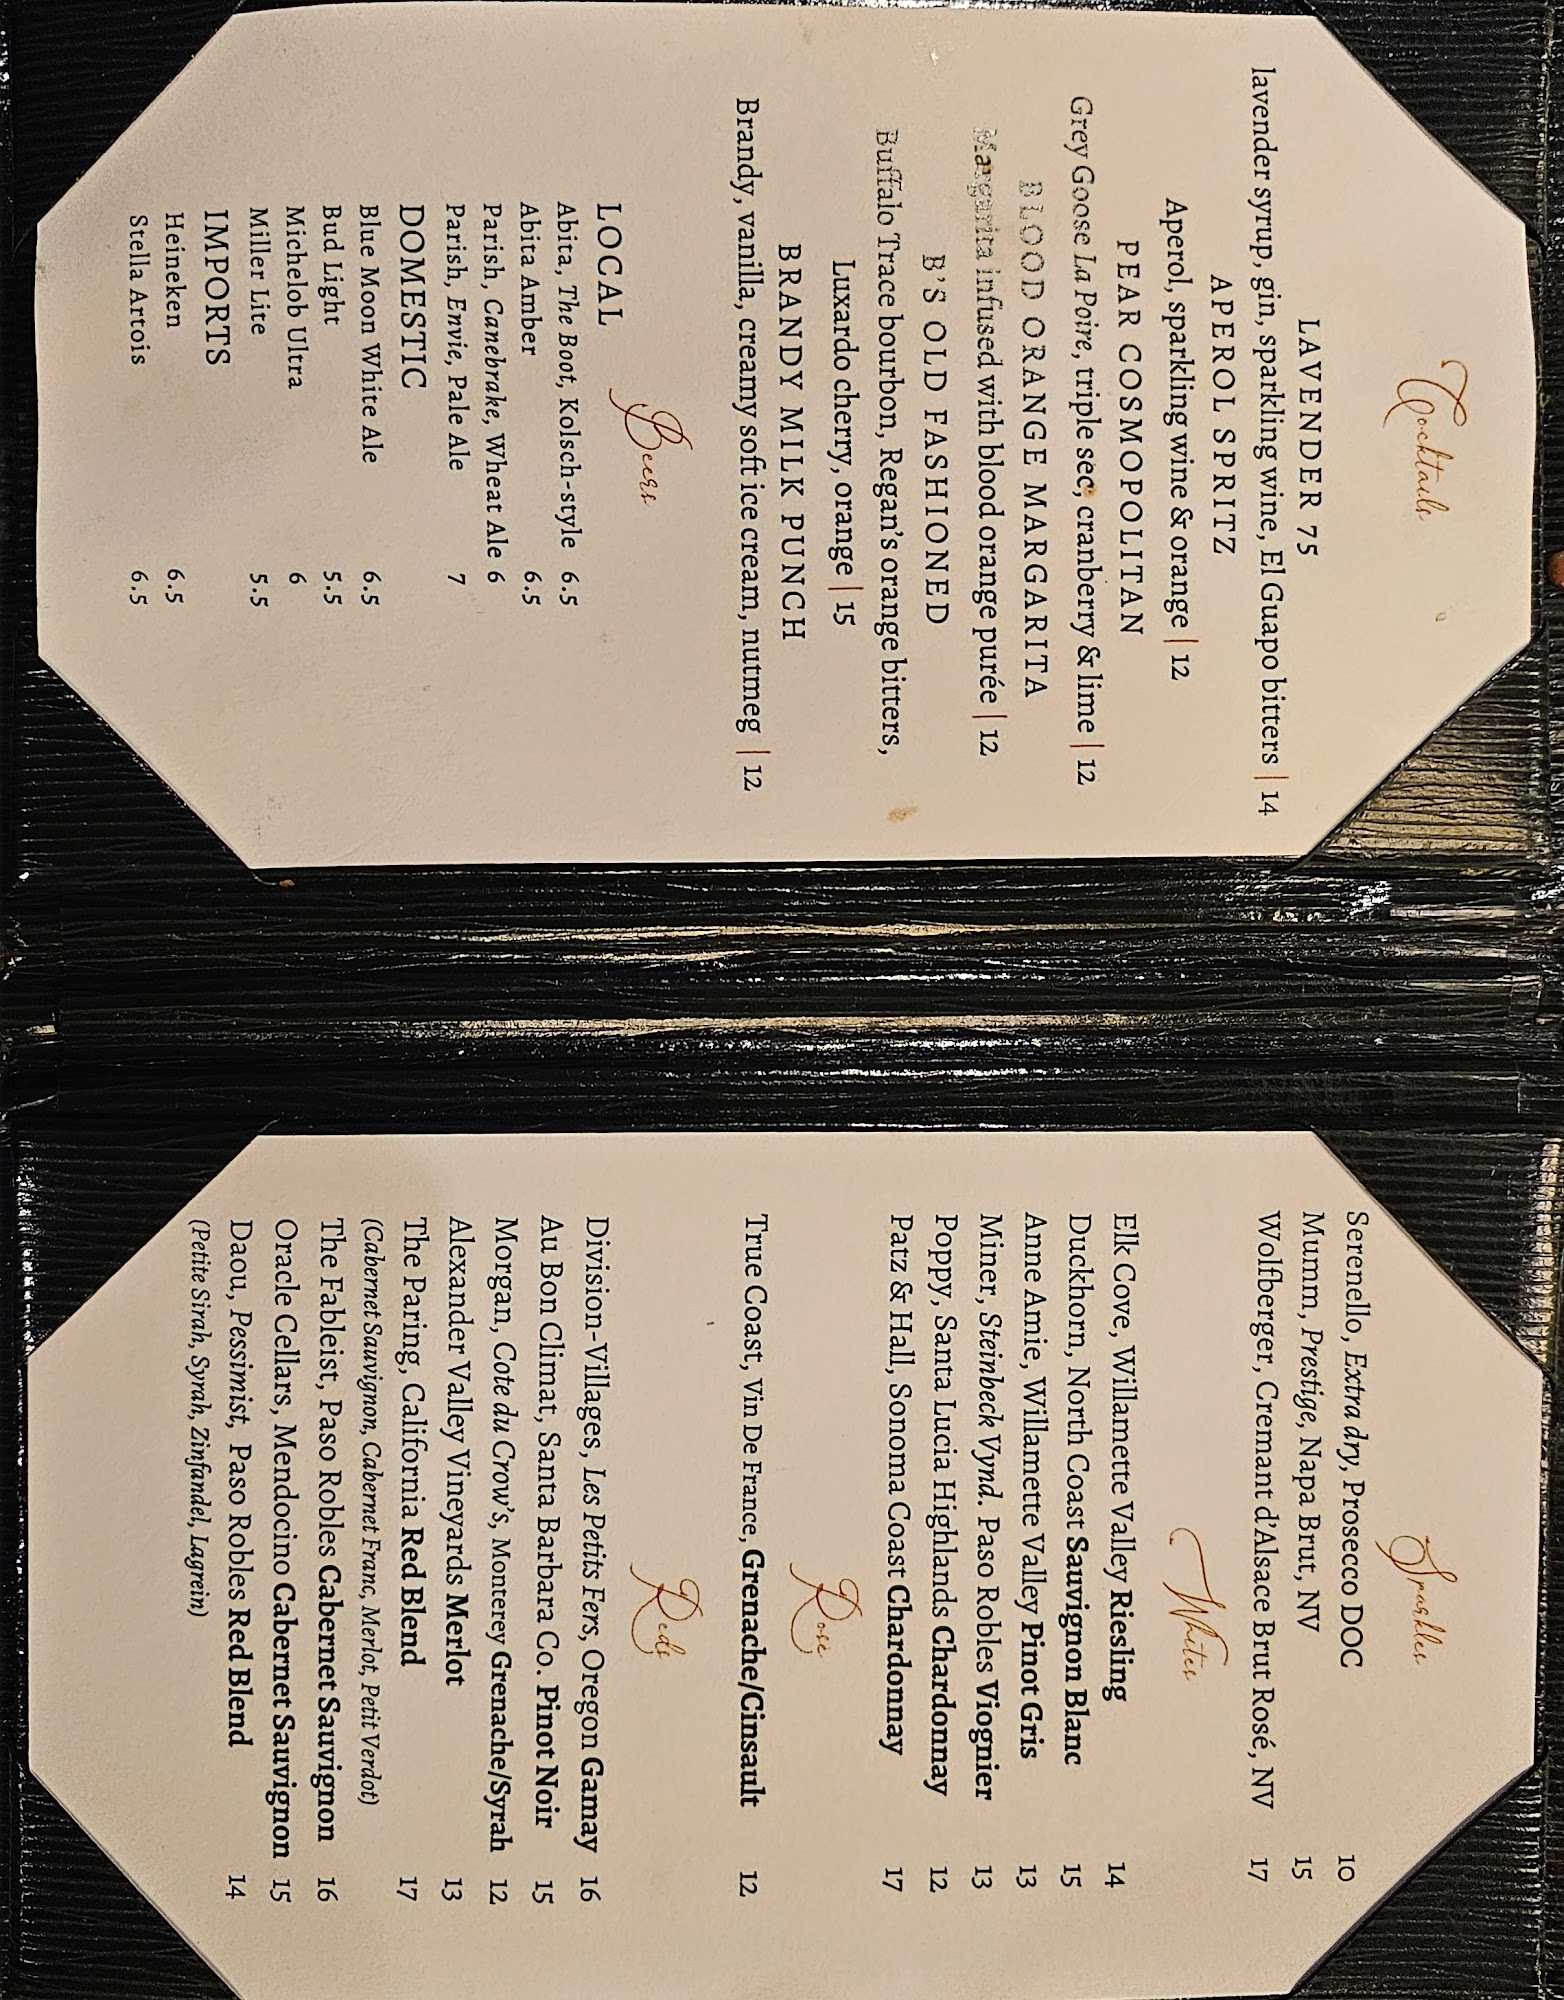 Cocktails
LAVENDER 75
lavender syrup, gin, sparkling wine, El Guapo bitters | 14
APEROL SPRITZ
Aperol, sparkling wine & orange | 12
PEAR COSMOPOLITAN
Grey Goose La Poire, triple sec, cranberry & lime | 12
BLOOD ORANGE MARGARITA
Margarita infused with blood orange purée | 12
B'S OLD FASHIONED
Buffalo Trace bourbon, Regan's orange bitters,
Luxardo cherry, orange | 15
BRANDY MILK PUNCH
Brandy, vanilla, creamy soft ice cream, nutmeg | 12
Beers
LOCAL
Abita, The Boot, Kolsch-style 6.5
Abita Amber 6.5
Parish, Canebrake, Wheat Ale 6
Parish, Envie, Pale Ale 7
DOMESTIC
Blue Moon White Ale 6.5
Bud Light 5.5
Michelob Ultra 6
Miller Lite 5.5
IMPORTS
Heineken 6.5
Stella Artois 6.5
Sparkles
Serenello, Extra dry, Prosecco DOC 10
Mumm, Prestige, Napa Brut, NV 15
Wolfberger, Cremant d'Alsace Brut Rosé, NV 17
Whites
Elk Cove, Willamette Valley Riesling 14
Duckhorn, North Coast Sauvignon Blanc 15
Anne Amie, Willamette Valley Pinot Gris 13
Miner, Steinbeck Vynd. Paso Robles Viognier 13
Poppy, Santa Lucia Highlands Chardonnay 12
Patz & Hall, Sonoma Coast Chardonnay 17
Rosé
True Coast, Vin De France, Grenache/Cinsault 12
Reds
Division-Villages, Les Petits Fers, Oregon Gamay 16
Au Bon Climat, Santa Barbara Co. Pinot Noir 15
Morgan, Cote du Crow's, Monterey Grenache/Syrah 12
Alexander Valley Vineyards Merlot 13
The Paring, California Red Blend 17
(Cabernet Sauvignon, Cabernet Franc, Merlot, Petit Verdot)
The Fableist, Paso Robles Cabernet Sauvignon 16
Oracle Cellars, Mendocino Cabernet Sauvignon 15
Daou, Pessimist, Paso Robles Red Blend 14
(Petite Sirah, Syrah, Zinfandel, Lagrein)